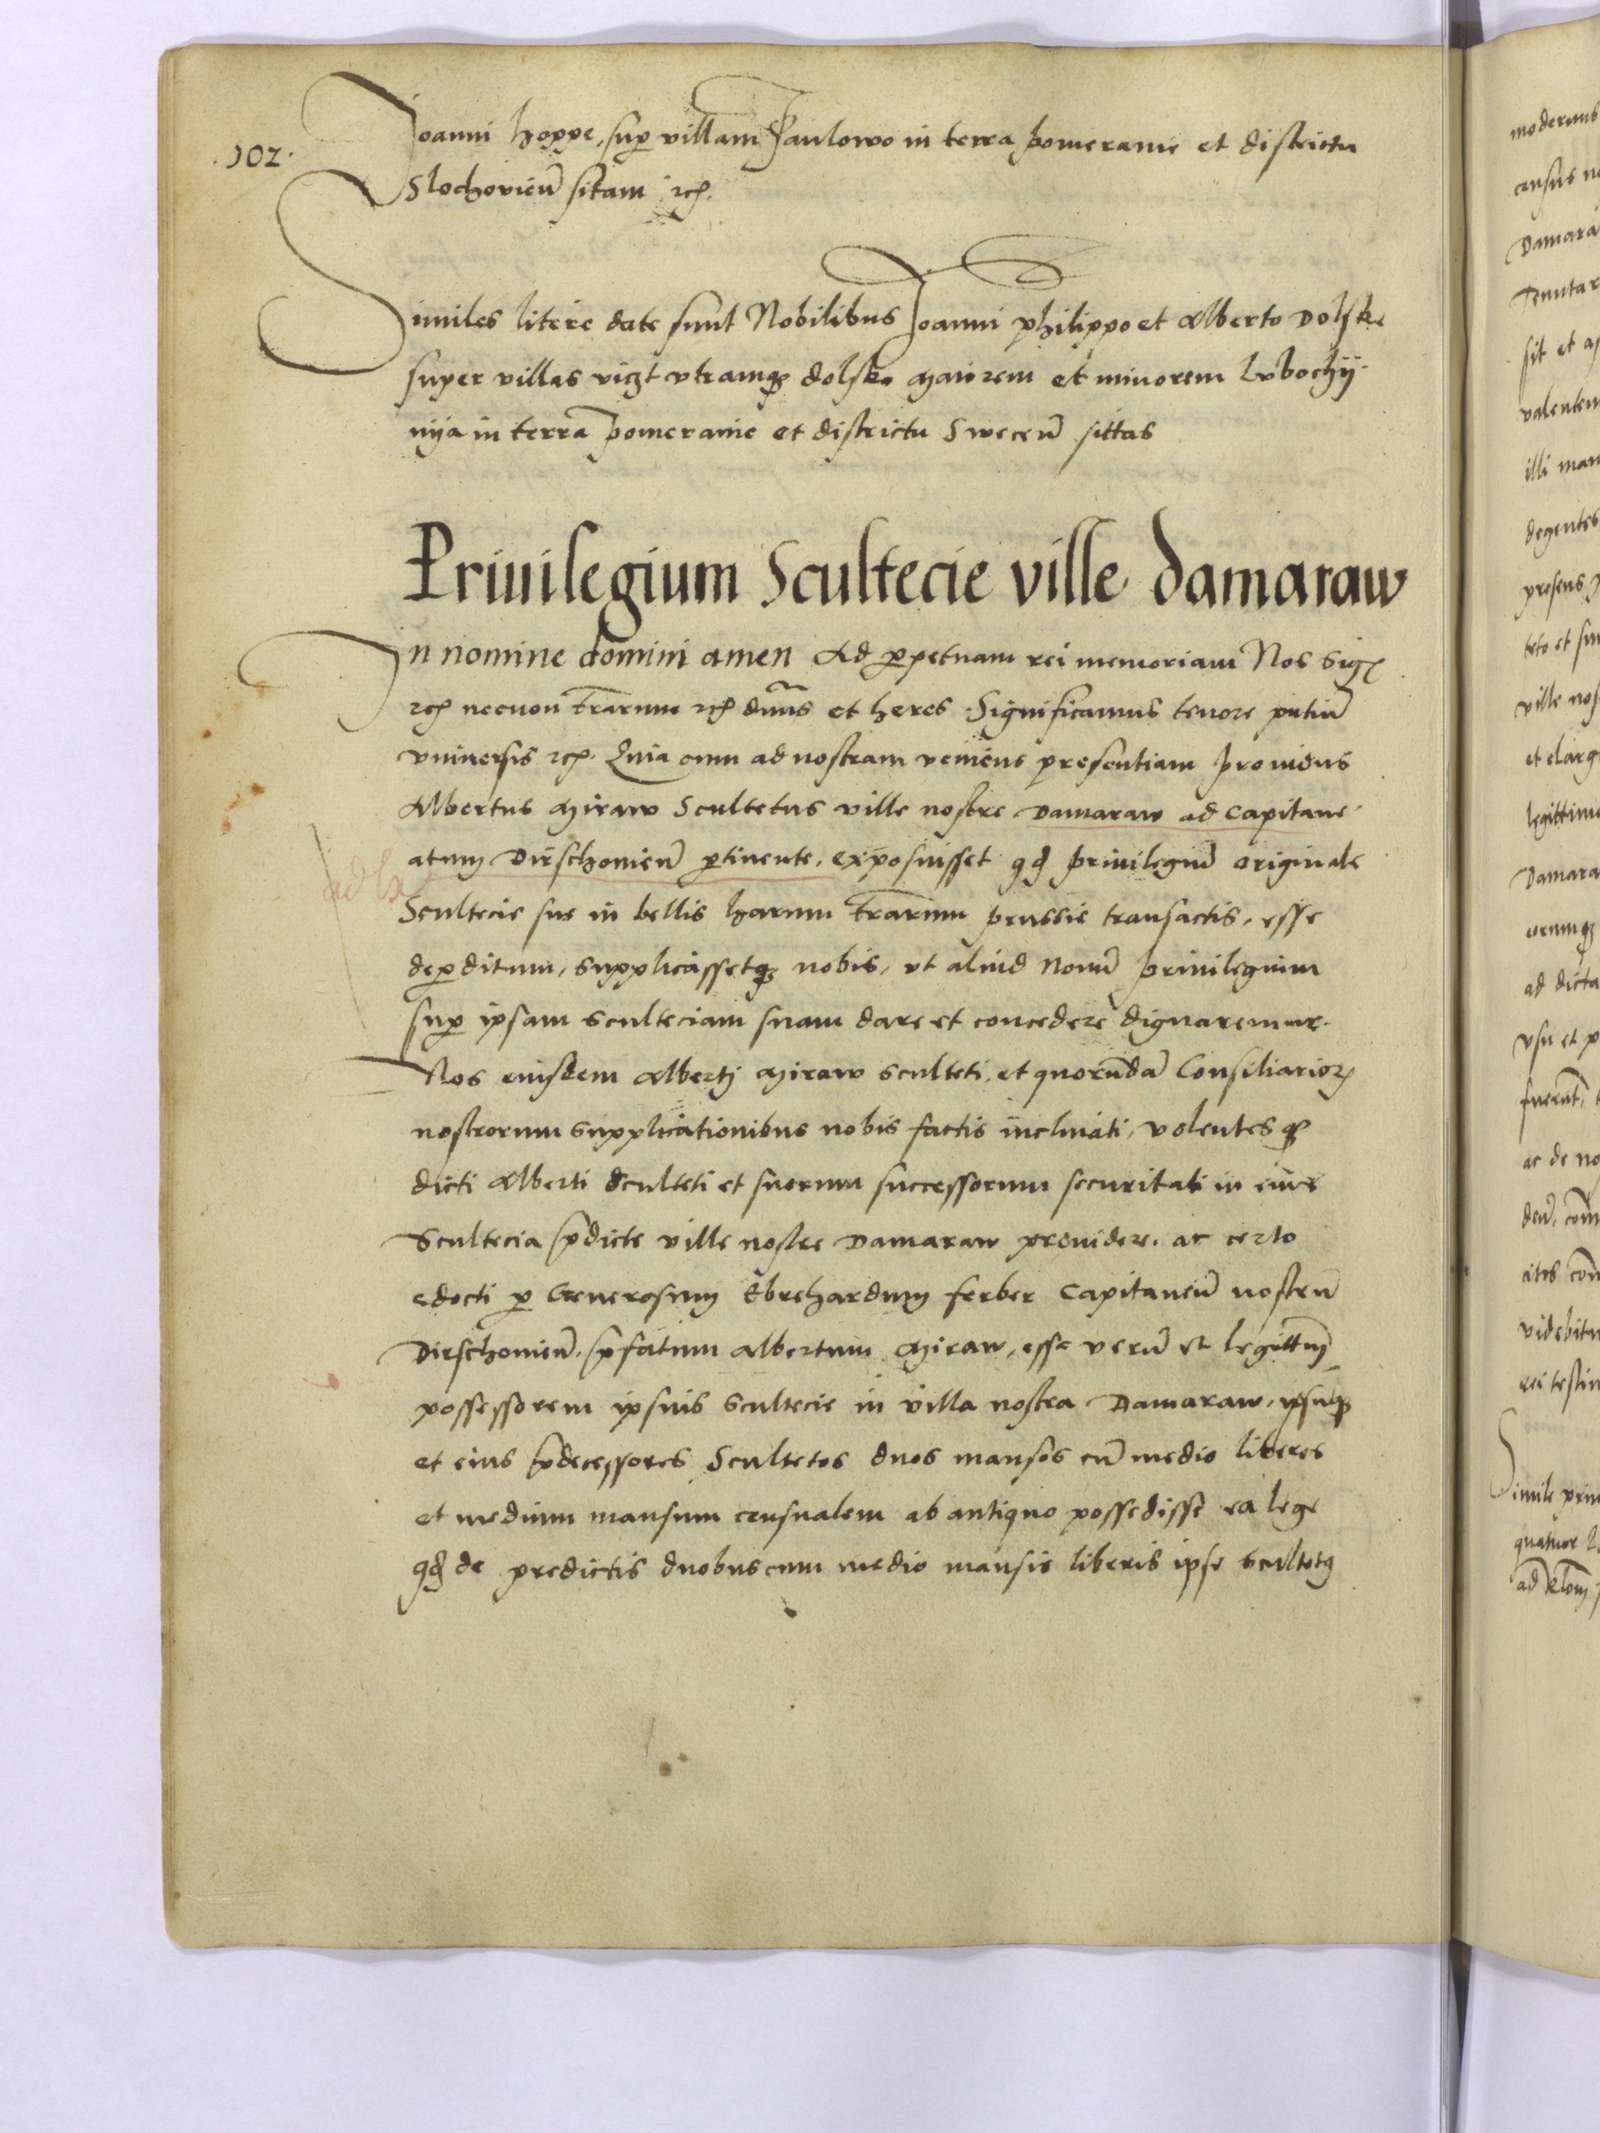 .102.
Joanni hoppe, sup villam Paulowo in terra pomeranie et districtu
Slochovien sitam rc.
Similes litere date sunt Nobilibus Joanni philippo et Alberto Dolske
super villas viczt vtramq dolsko maiorem et minorem Lvbochij
nija in terra pomeranie et districtu Swecen sittas
Privilegium Scultecie ville Damaraw
In nomine domini amen Ad perpetuam rei memoriam Nos Sig
rc necnon trarum rc dnus et heres Significamus tenore pntium
vniversis rc. Quia cum ad nostram veniens presentiam providus
Albertus Miraw Scultetus ville nostre Damaraw ad Capitane
atum Dirschouien ptinente, exposuisset qd privilegiu originale
Scultecie sue in bellis harum trarum prussie transactis, esse
depditum, supplicassetq nobis, vt aliud Novu privilegium
sup ipsam sculteciam suam dare et concedere dignaremur.
Nos eiusdem Alberti Miraw sculteti, et quorunda Consiliarior
nostrorum supplicationibus nobis factis inclinati, volentesq
dicti Alberti Sculteti et suorum successorum securitati in eius
Scultecia pdicte ville nostre Damaraw providere. ac certo
edocti p Generosum Ebrehardum ferber Capitaneu nostru
Dirschouien. pfatum Albertum Miraw, esse veru et legittim
possessorem ipsius scultecie in villa nostra Damaraw, ipsuq
et eius pdecessores Scultetos duos mansos cu medio liberos
et medium mansum censualem ab antiquo possedisse ea lege
qd de predictis duobus cum medio mansis liberis ipse scultetus
modernus
census
Damara
sit et
valentem
illi
degentes
presens
ville
et elarg
legittim
Damara
ad dicta
vsu et
fuerunt
ac de no
videbitu
rei testim
Simile
quatuor